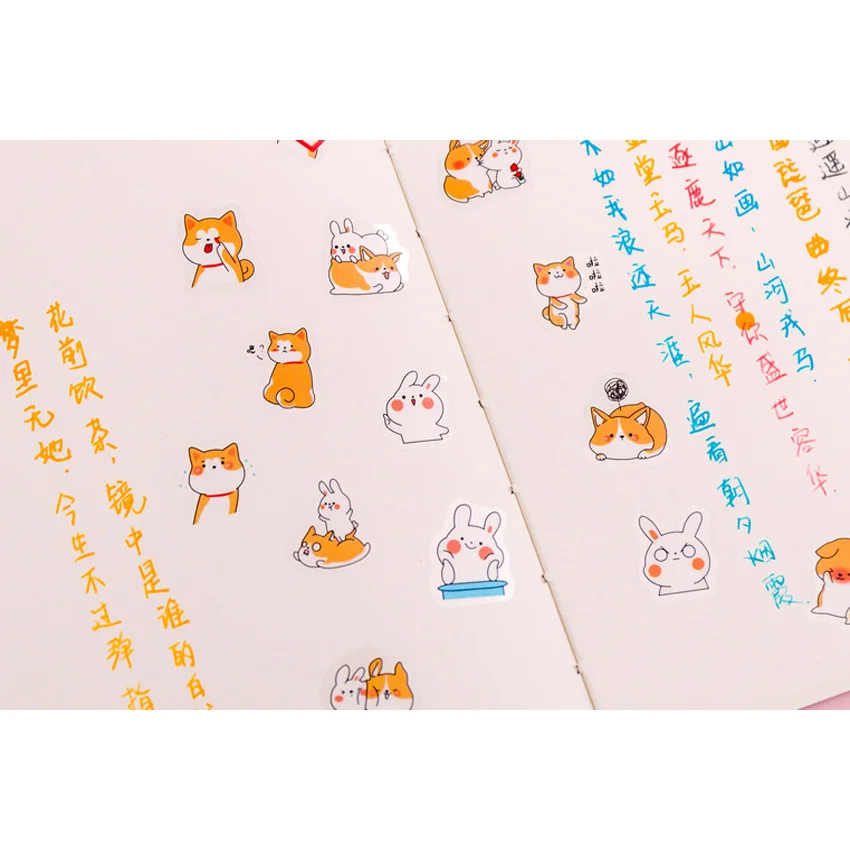 遇山
琵琶曲终
山如画，山河戎马.
逐鹿天下.守你盛世容华.
堂玉马.玉人风华
不如我浪迹天涯，遍看朝夕烟霞.
啦啦啦
嗯?
花前饮茶，镜中是谁的
梦里无她.今生不过弹指